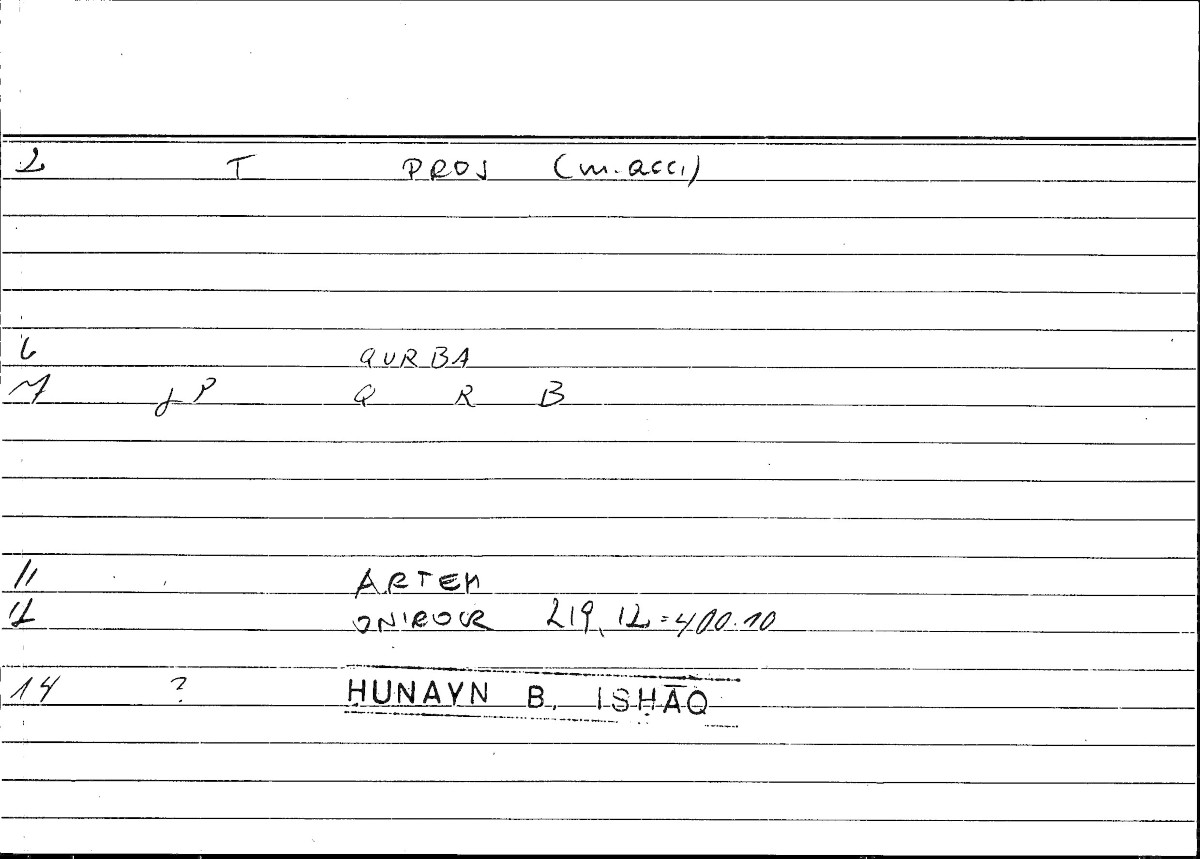 2 T PROS (m. acc.)
6 QURBA
7 P Q R B
11 ARTEM
12 ONIROCR 219, 12 = 400.10
14 ? ḤUNAYN B. ISḤĀQ